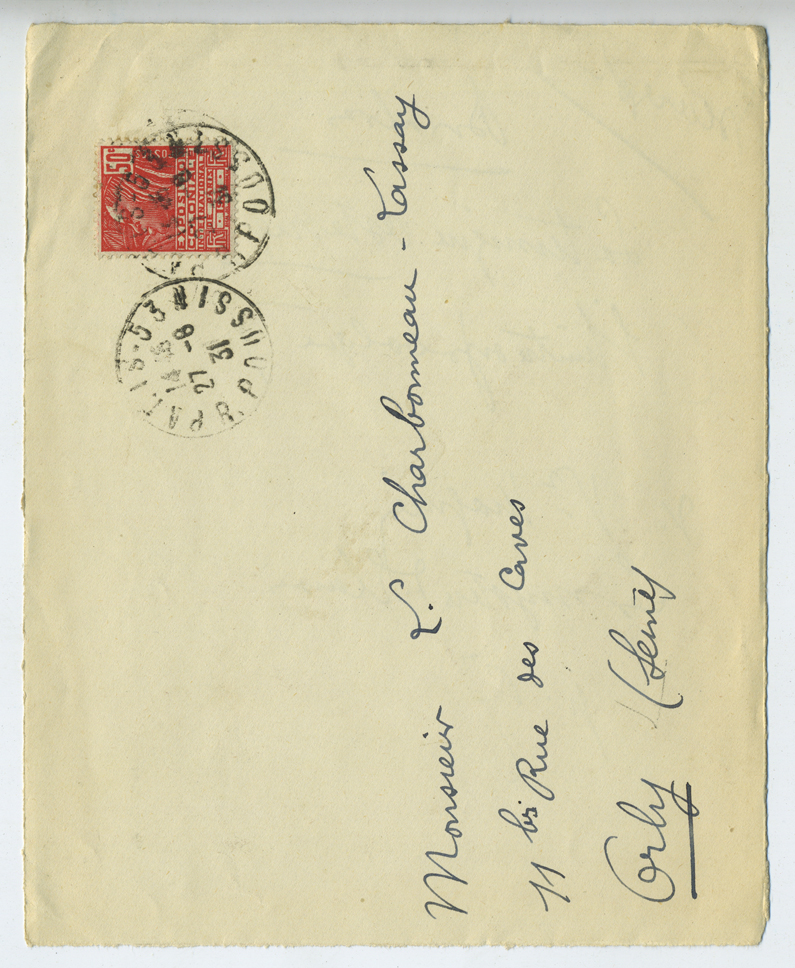 50c
EXPOSITION
COLONIALE
INTERNATIONALE
PARIS
PARIS-53 R. POUSSIN
14
27 -8
31
Monsieur L. Charbonneau-Lassay
11 bis Rue des Caves
Orly (Seine)